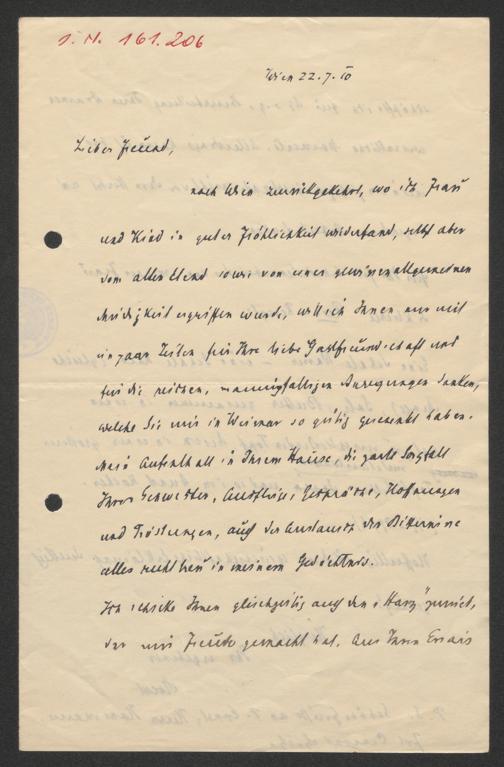 I. N. 161.206
Wien 22.7.10
Lieber Freund,
nach Wien zurückgekehrt, wo ich Frau
und Kind in guter Fröhlichkeit wiederfand, selbst aber
vom alten Elend sowie von einer gewissen allgemeinen
Müdigkeit ergriffen wurde, will ich Ihnen nur mit
ein paar Zeilen für Ihre liebe Gastfreundschaft und
für die reichen, mannigfaltigen Anregungen danken,
welche Sie mir in Weimar so gütig geschenkt haben.
Mein Aufenthalt in Ihrem Hause, die zarte Sorgfalt
Ihrer Schwester, Ausflüge, Gespräche, Hoffnungen
und Tröstungen, auch der Austausch der Bitternisse
alles ruht treu in meinem Gedächtnis.
Ich schicke Ihnen gleichzeitig auch den "Harz" zurück,
der mir Freude gemacht hat. Aus Ihren Essais